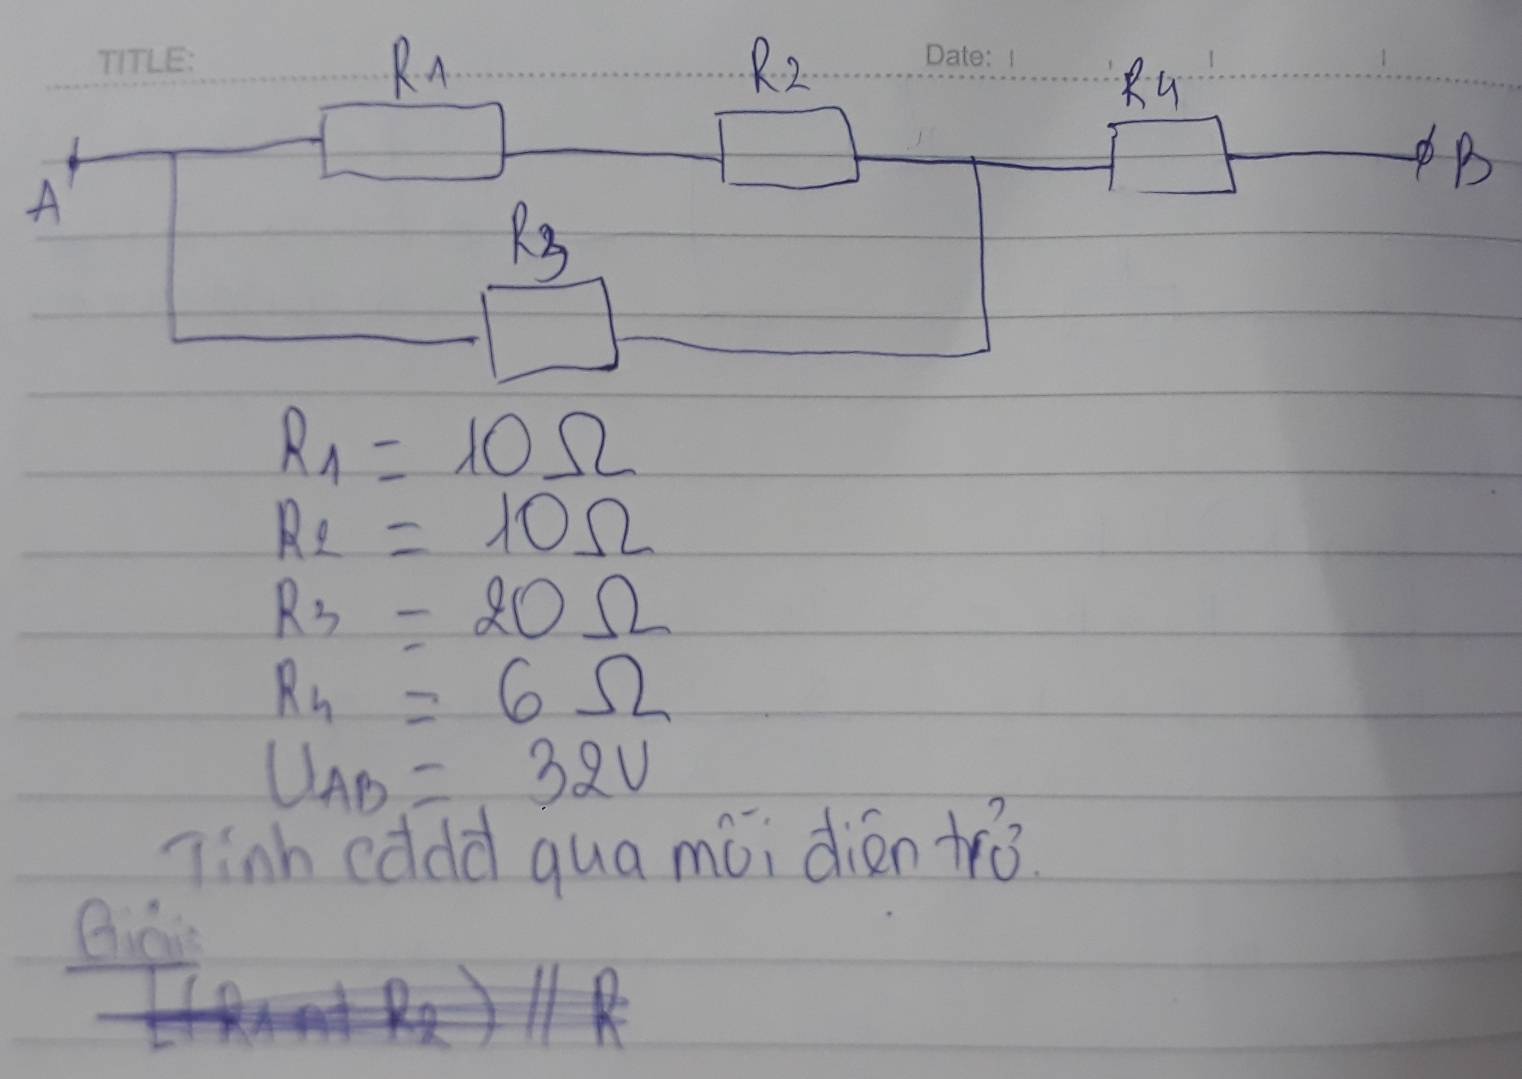 TITLE:
Date:
R1
R2
R4
A
B
R3
R1 = 10 Ω
R2 = 10 Ω
R3 = 20 Ω
R4 = 6 Ω
UAB = 32V
Tính cđdđ qua mỗi điện trở.
Giải:
[(R1 nt R2) // R